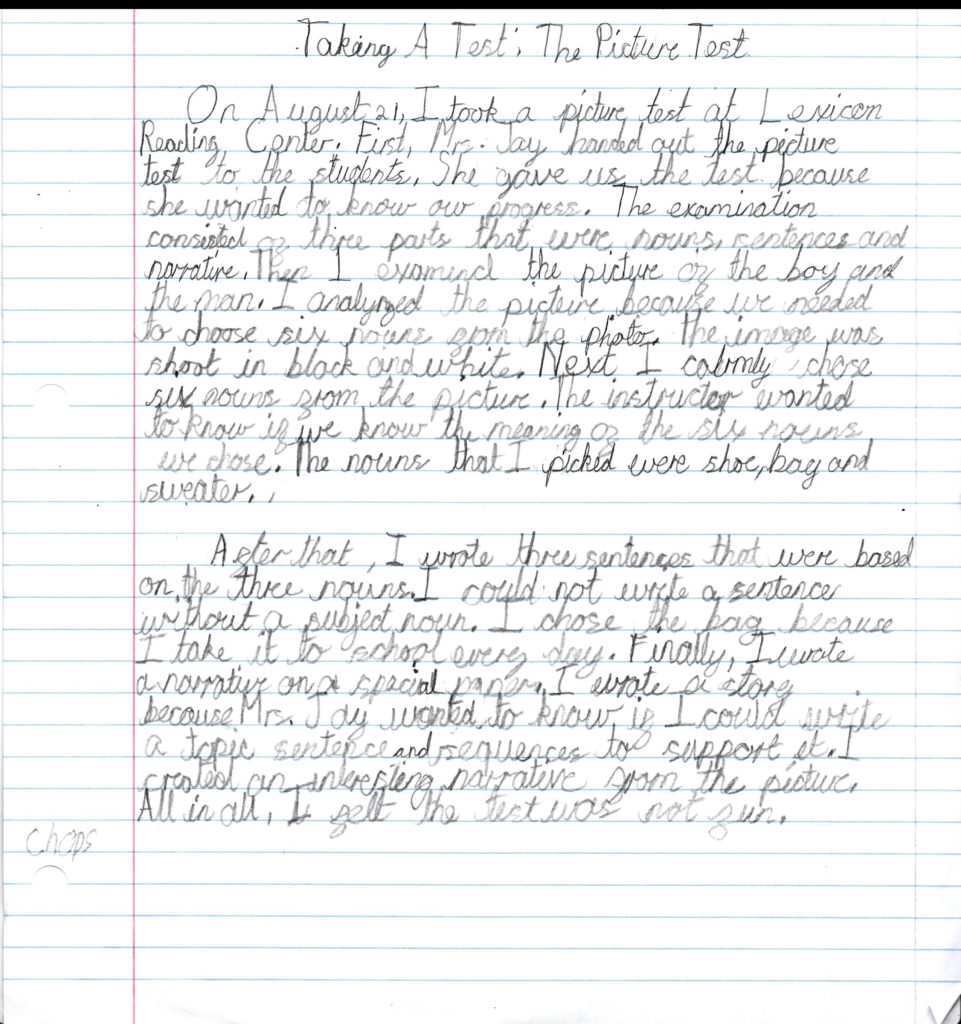 Taking A Test: The Picture Test
On August 21, I took a picture test at Lexicon
Reading Center. First, Mrs. Jay handed out the picture
test to the students. She gave us the test because
she wanted to know our progress. The examination
consisted of three parts that were nouns, sentences and
narrative. Then I examined the picture of the boy and
the man. I analyzed the picture because we needed
to choose six nouns from the photo. The image was
shoot in black and white. Next I calmly chose
six nouns from the picture. The instructor wanted
to know if we know the meaning of the six nouns
we chose. The nouns that I picked were shoe, bag and
sweater.
After that, I wrote three sentences that were based
on the three nouns. I could not write a sentence
without a subject noun. I chose the bag because
I take it to school every day. Finally, I wrote
a narrative on a special paper. I wrote a story
because Mrs. Jay wanted to know if I could write
a topic sentence and sequences to support it. I
created an interesting narrative from the picture.
All in all, I felt the test was not fun.
chaps